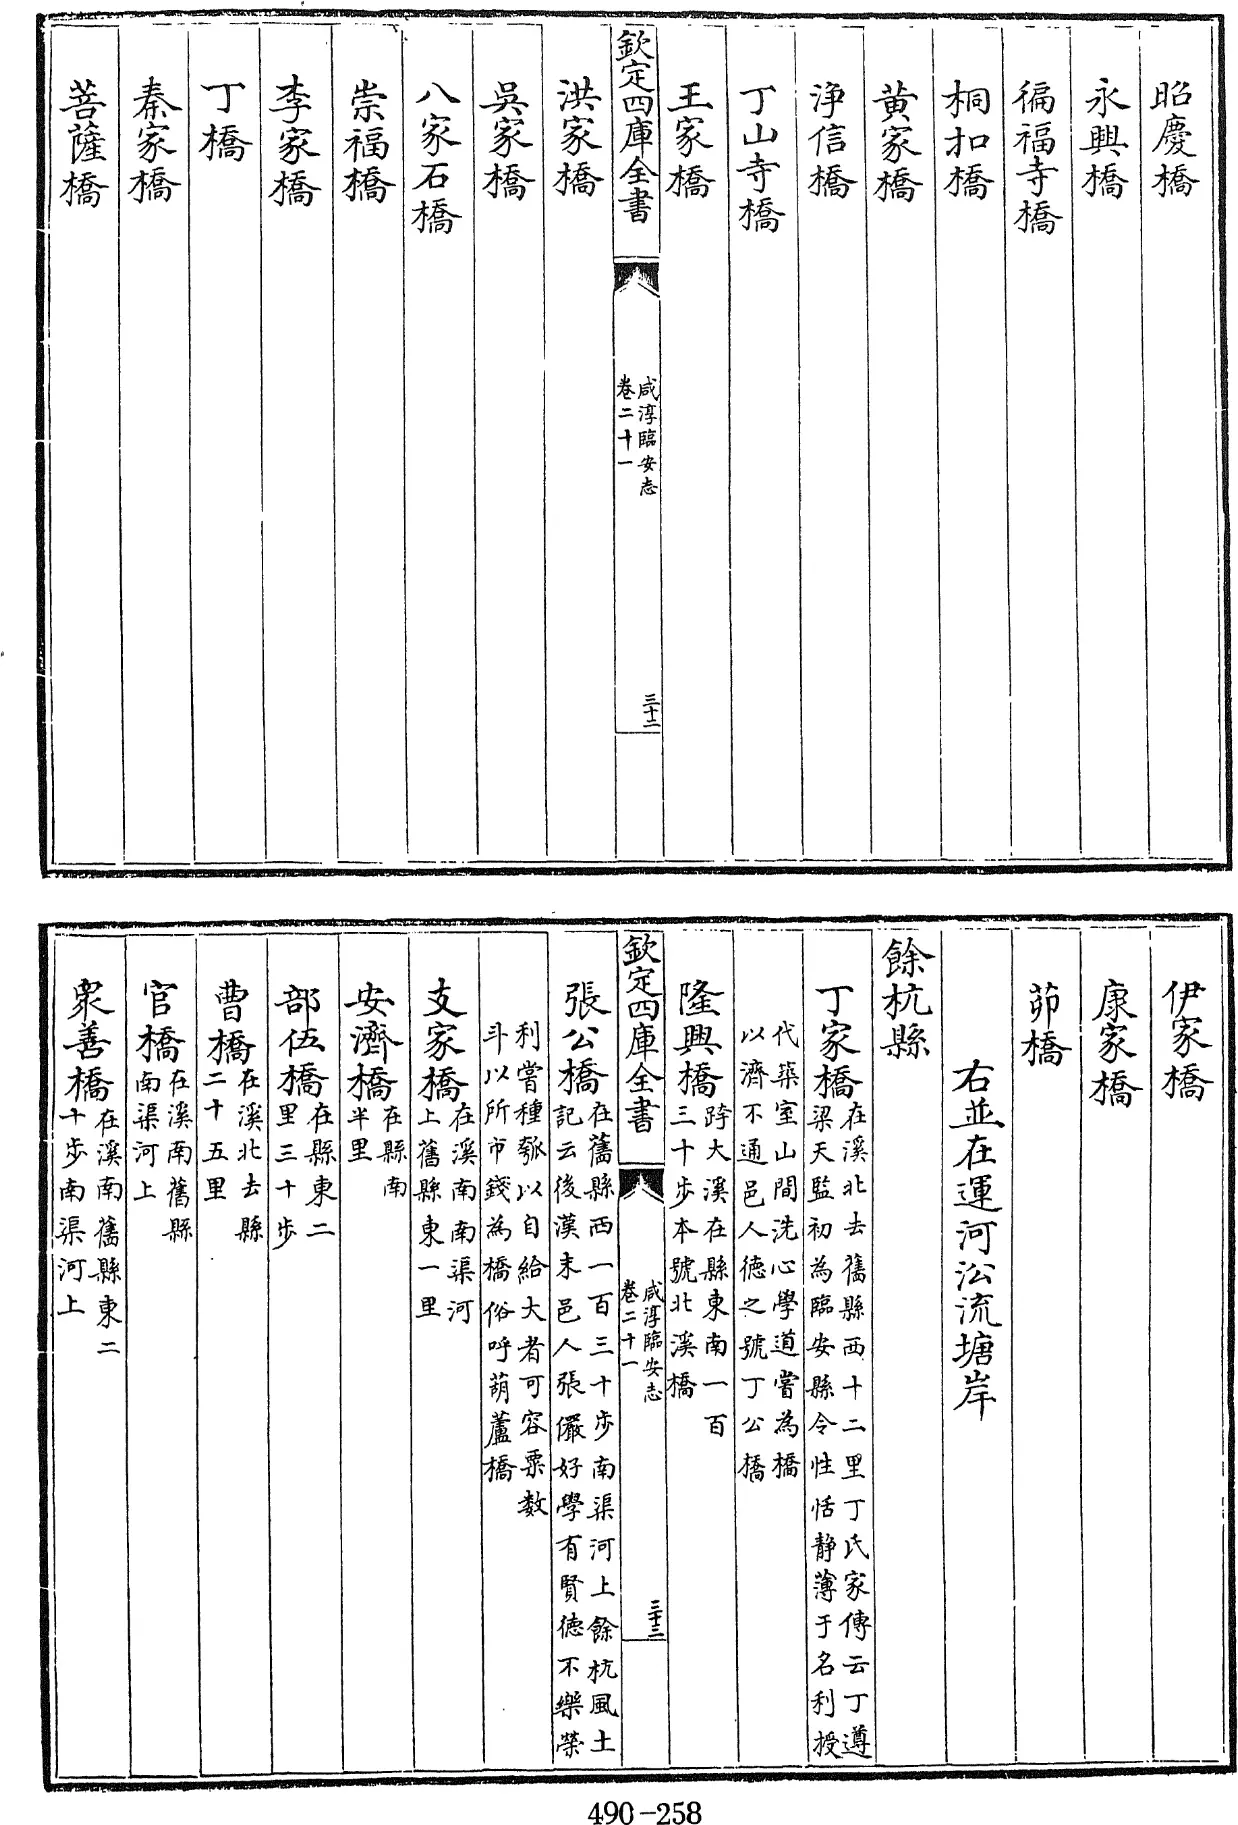 昭慶橋
永興橋
徧福寺橋
桐扣橋
黄家橋
淨信橋
丁山寺橋
王家橋
欽定四庫全書
咸淳臨安志
卷二十一
三十二
洪家橋
吳家橋
八家石橋
崇福橋
李家橋
丁橋
秦家橋
菩薩橋
伊家橋
康家橋
茆橋
右並在運河㳂流塘岸
餘杭縣
丁家橋在溪北去舊縣西十二里丁氏家傳云丁遵
梁天監初為臨安縣令性恬静薄于名利授
代築室山間洗心學道嘗為橋
以濟不通邑人德之號丁公橋
隆興橋跨大溪在縣東南一百
三十步本號北溪橋
欽定四庫全書
咸淳臨安志
卷二十一
三十三
張公橋在舊縣西一百三十步南渠河上餘杭風土
記云後漢末邑人張儼好學有賢德不樂榮
利嘗種瓠以自給大者可容粟数
斗以所市錢為橋俗呼葫蘆橋
支家橋在溪南南渠河
上舊縣東一里
安濟橋在縣南
半里
部伍橋在縣東二
里三十步
曹橋在溪北去縣
二十五里
官橋在溪南舊縣
南渠河上
衆善橋在溪南舊縣東二
十步南渠河上
490-258